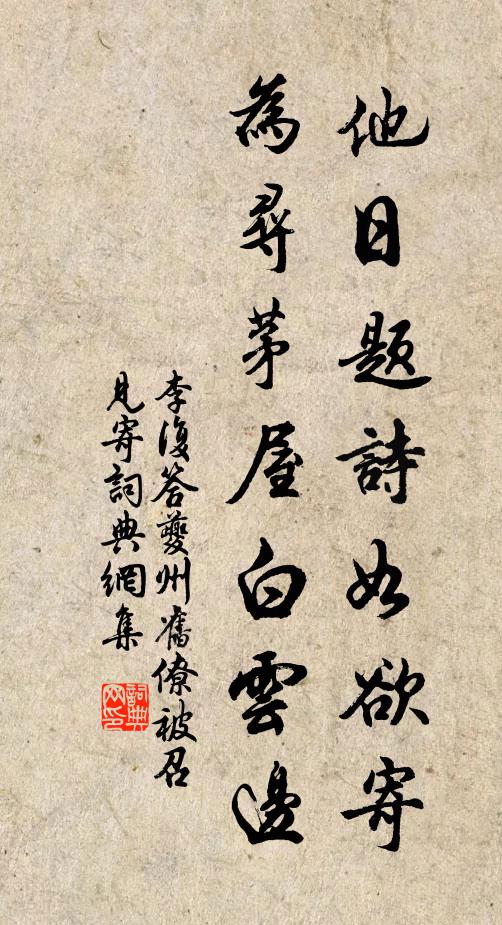 他日題詩如欲寄
為尋茅屋白雲邊
李復答夔州舊僚被召
見寄詞典網集
詞典网印